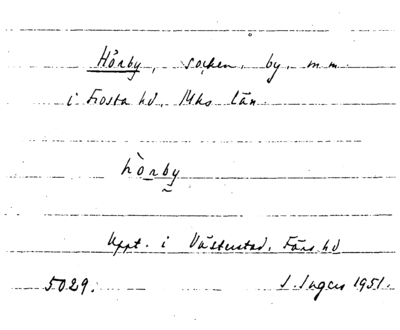 Hörby, socken, by, m.m.
i Frosta hd, Mhs län.
hòrby
Uppt. i Västerstad, Färs hd
5029. I. Ingers 1951.